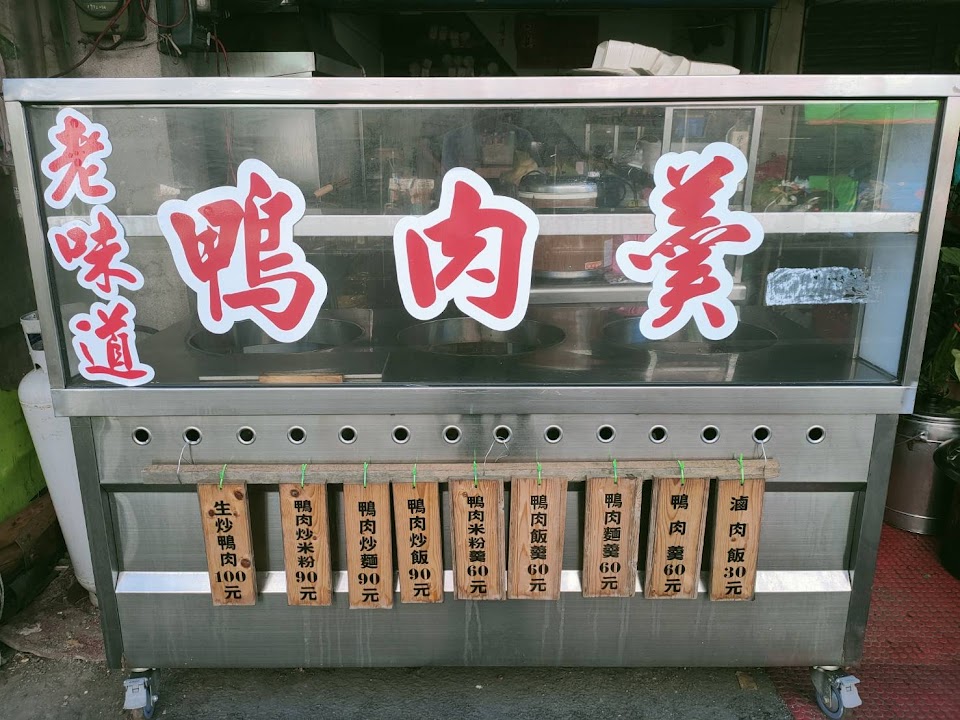 老味道
鴨肉羹
生炒鴨肉100元
鴨肉炒米粉90元
鴨肉炒麵90元
鴨肉炒飯90元
鴨肉米粉羹60元
鴨肉飯羹60元
鴨肉麵羹60元
鴨肉羹60元
滷肉飯30元